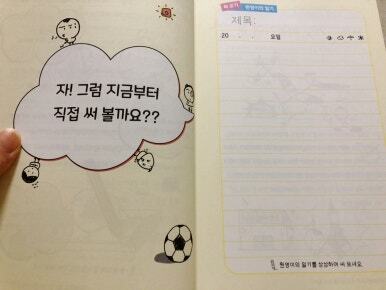 자! 그럼 지금부터
직접 써 볼까요??
원영이의 일기
제목:
20 . . 요일
원영이의 일기를 상상하여 써 보세요.